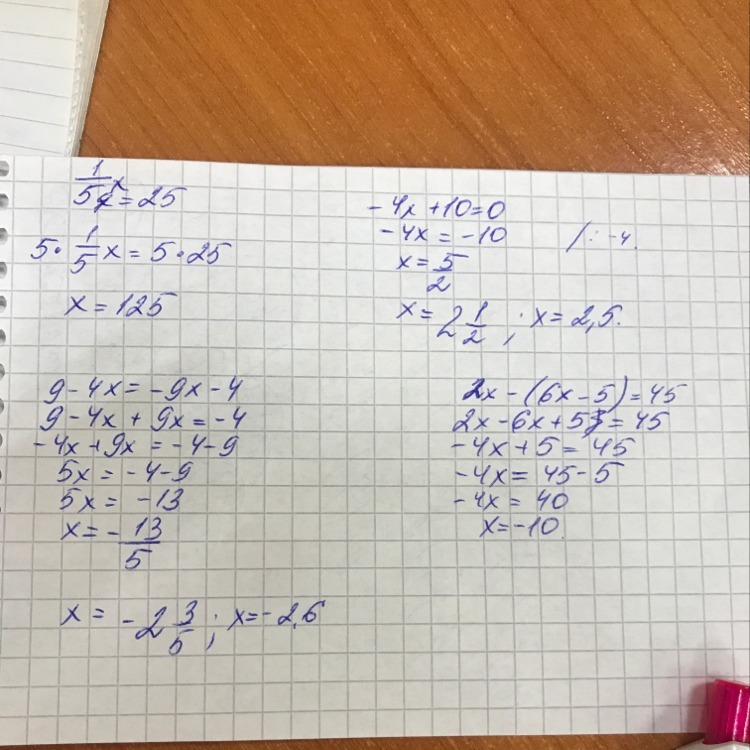 1/5 x = 25
5 · 1/5 x = 5 · 25
x = 125
-4x + 10 = 0
-4x = -10 /: -4.
x = 5/2
x = 2 1/2 ; x = 2,5.
9 - 4x = -9x - 4
9 - 4x + 9x = -4
-4x + 9x = -4 - 9
5x = -4 - 9
5x = -13
x = - 13/5
x = -2 3/5 ; x = -2,6
2x - (6x - 5) = 45
2x - 6x + 5 = 45
-4x + 5 = 45
-4x = 45 - 5
-4x = 40
x = -10